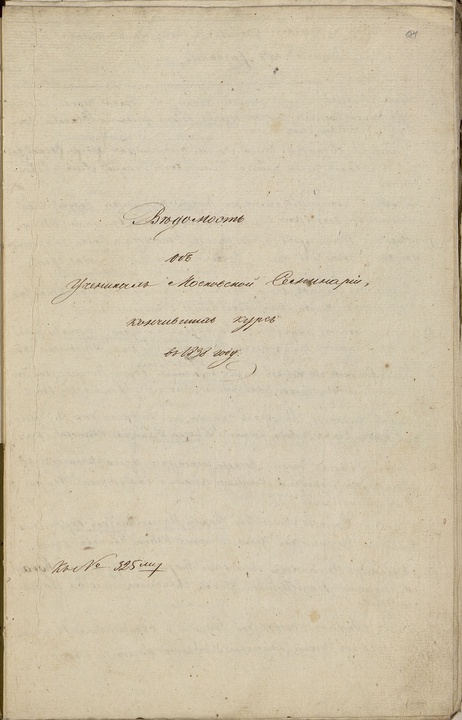 Вѣдомость
объ
Ученикахъ Московской Семинаріи,
кончившихъ курсъ
въ 1838 году.
Къ № 325му